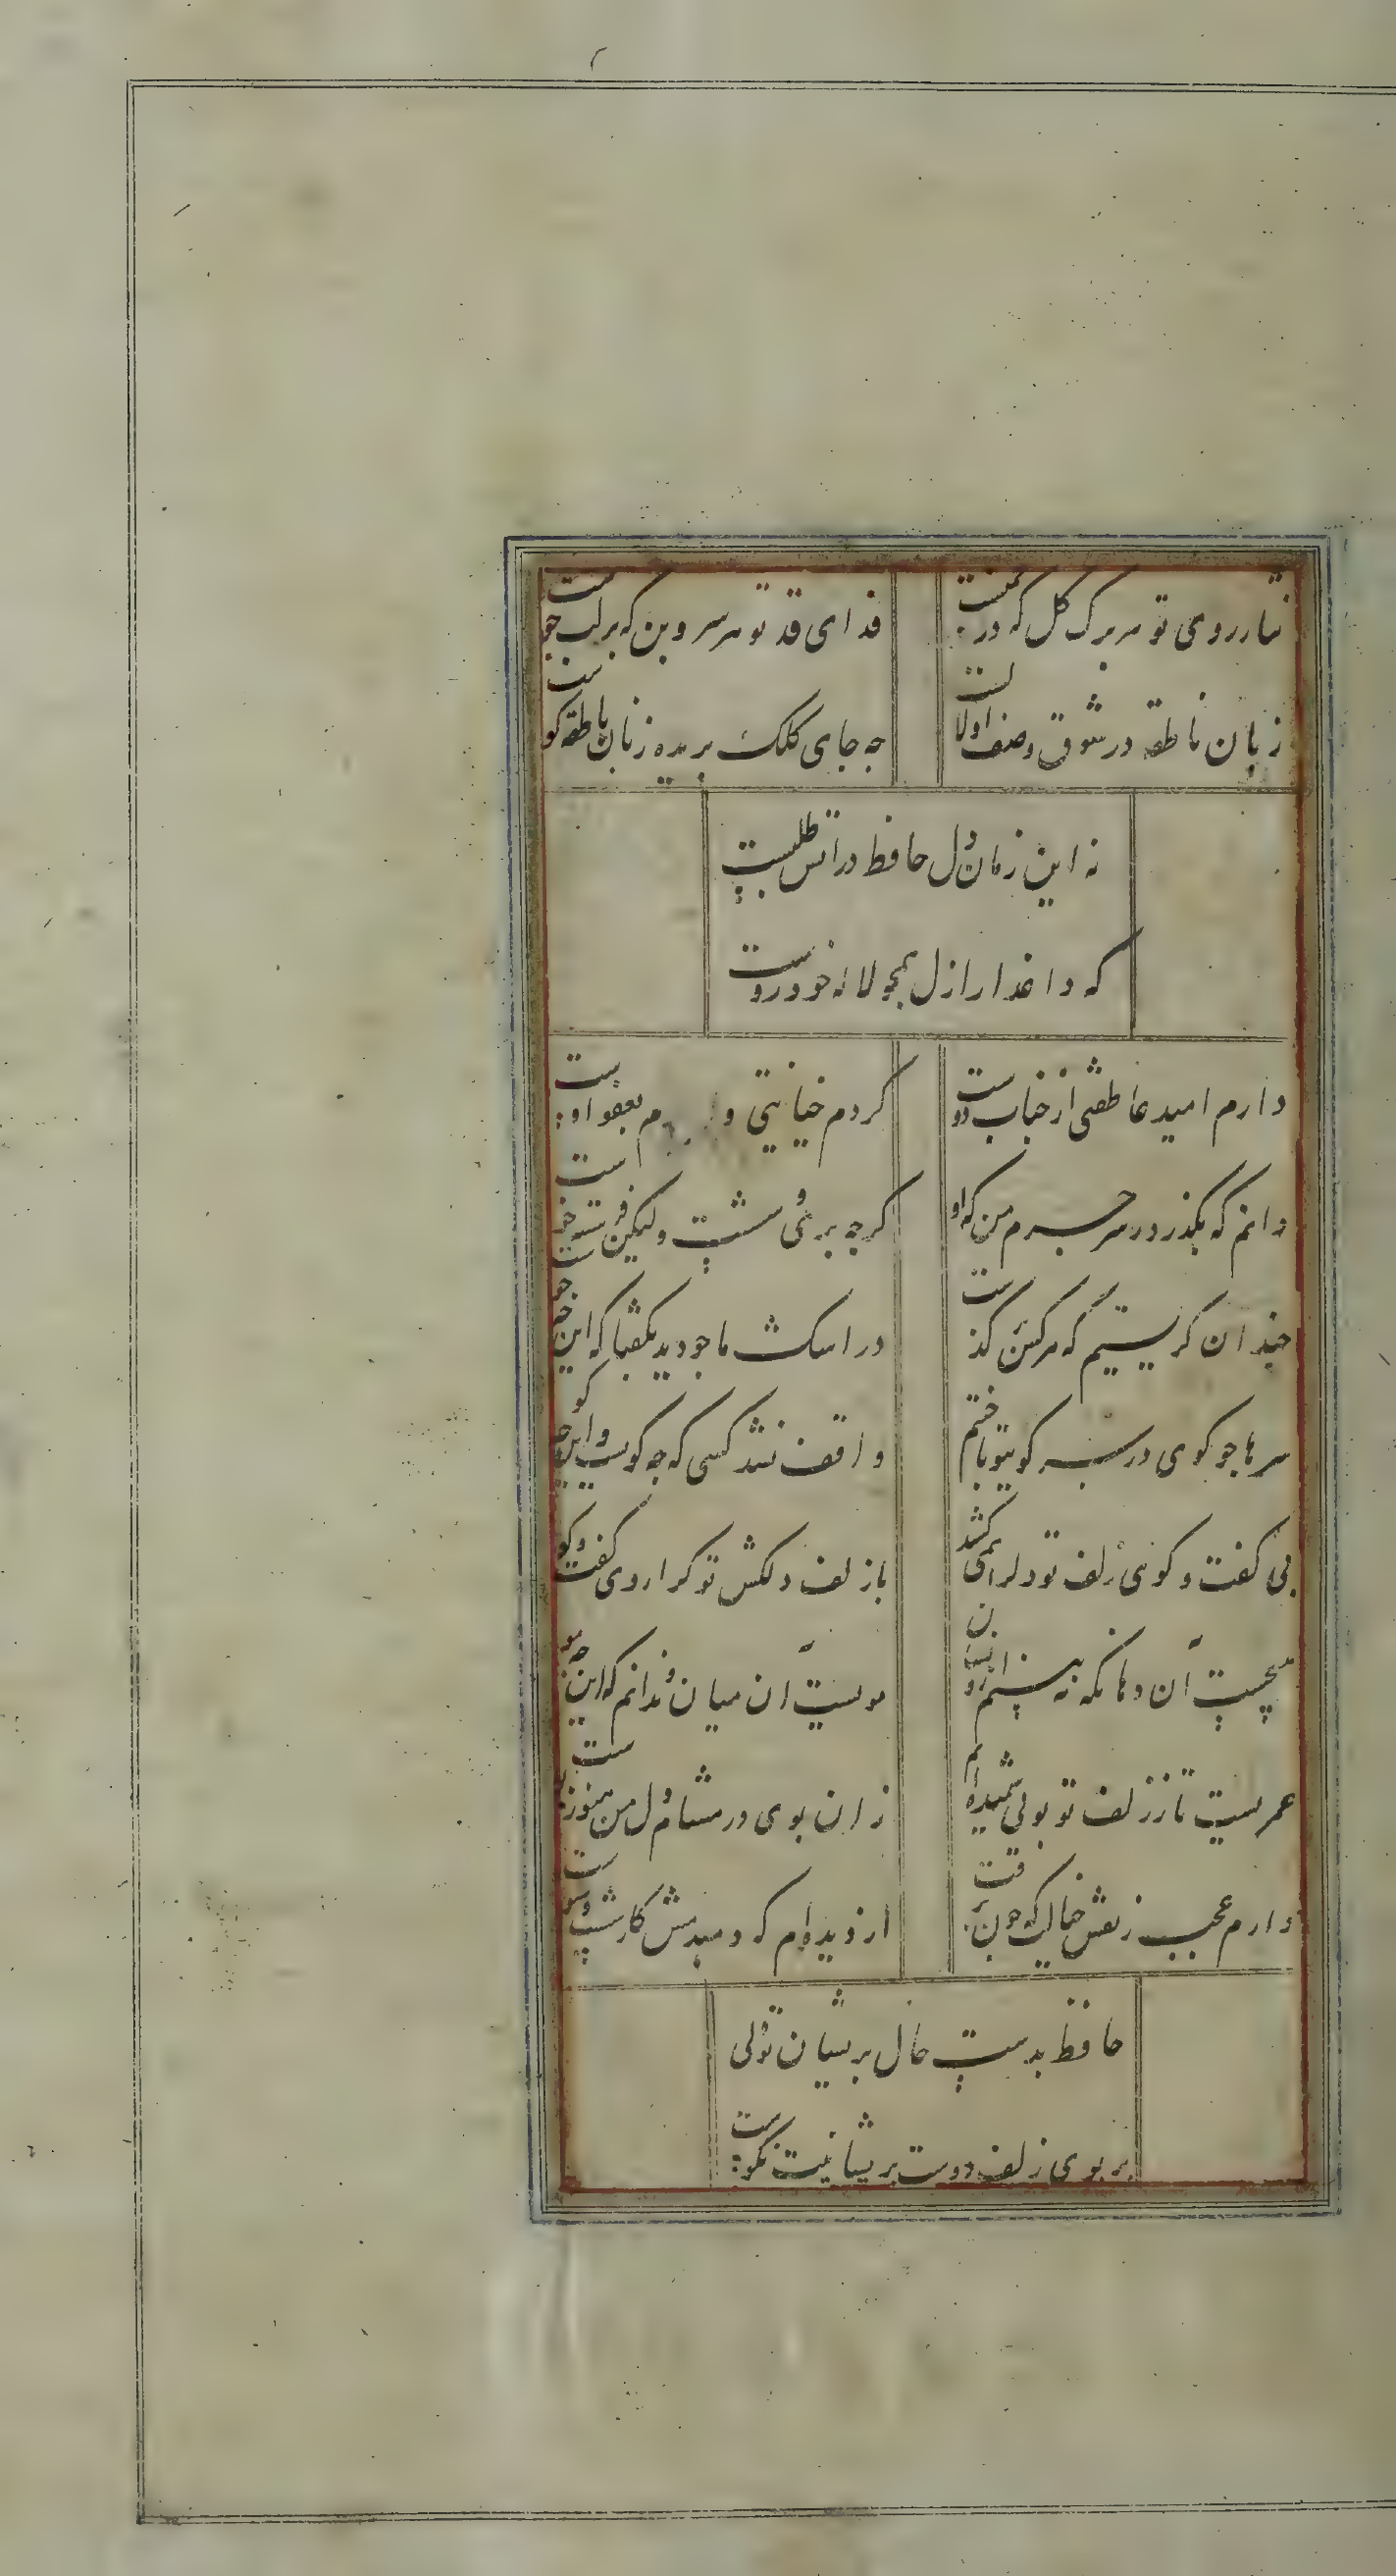 نثار روی تو هر برک کل که در چمنست
فدای قد تو هر سرو بن که بر لب جوست
زبان ناطقه در شوق وصف او لالست
چه جای کلک بریده زبان ناطقه کوست
نه این زمان دل حافظ در اتش طلبست
که داغدار ازل همچو لاله خودروست
دارم امید عاطفتی از جناب دوست
کردم خیانتی و بعفو اوست
دانم که بکذرد ز سر جرم من که او
کرچه پری وشست ولیکن فرشته خوست
چندان کریستیم که هر کس که کذشت
در اشک ما چو دید بکفتا که این چه جوست
سرها چو کوی در سر کوی تو باختیم
واقف نشد کسی که چه کویست و این چه کوست
بی کفت و کوی زلف تو دل را همی کشد
با زلف دلکش تو کرا روی کفت و کوست
هیچست آن دهان که نبینم ازو نشان
مویست آن میان و ندانم که این چه موست
عمریست تا ز زلف تو بویی شنیده‌ام
زان بوی در مشام دل من هنوز بوست
دارم عجب ز نقش خیالش که چون نرفت
از دیده‌ام که دمبدمش کار شست و شوست
حافظ بدست حال پریشان تو ولی
بر بوی زلف دوست پریشانیت نکوست